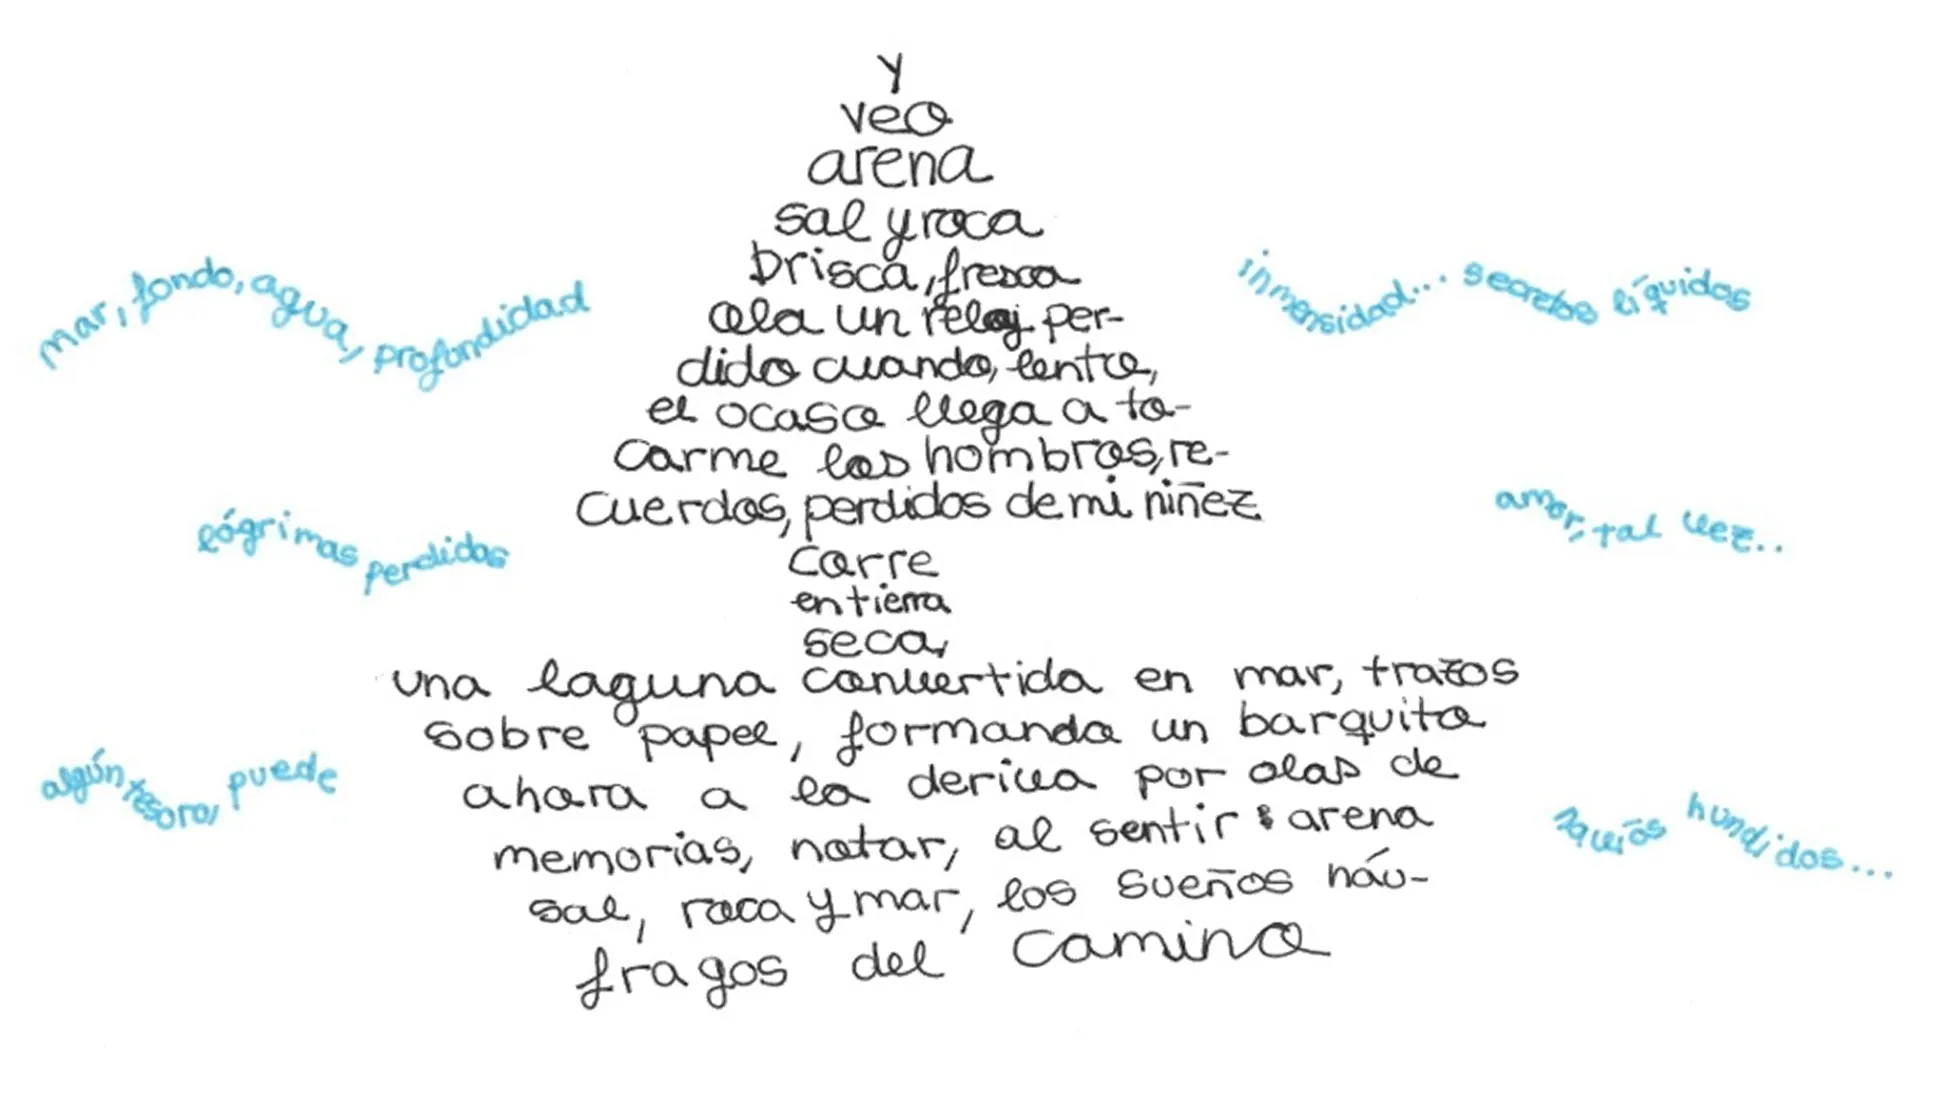 y
veo
arena
sal y roca
brisca, fresca
ola un reloj per-
dido cuando, lento,
el ocaso llega a to-
carme los hombros, re-
cuerdos, perdidos de mi niñez
corre
en tierra
seca,
una laguna convertida en mar, trazos
sobre papel, formando un barquito
ahora a la deriva por olas de
memorias, notar, al sentir arena
sal, roca y mar, los sueños náu-
fragos del camino
mar, fondo, agua, profundidad
lágrimas perdidas
algún tesoro, puede
inmensidad... secretos líquidos
amor, tal vez..
navíos hundidos...